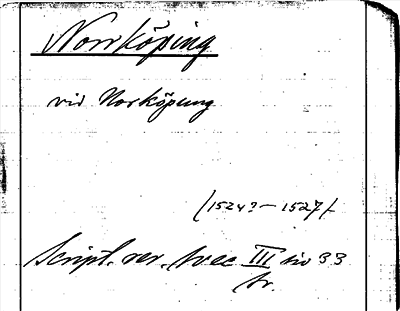 Norrköping
vid Norköpung
(1524?-1527)
Script. rer. svec III sid 33
tr.